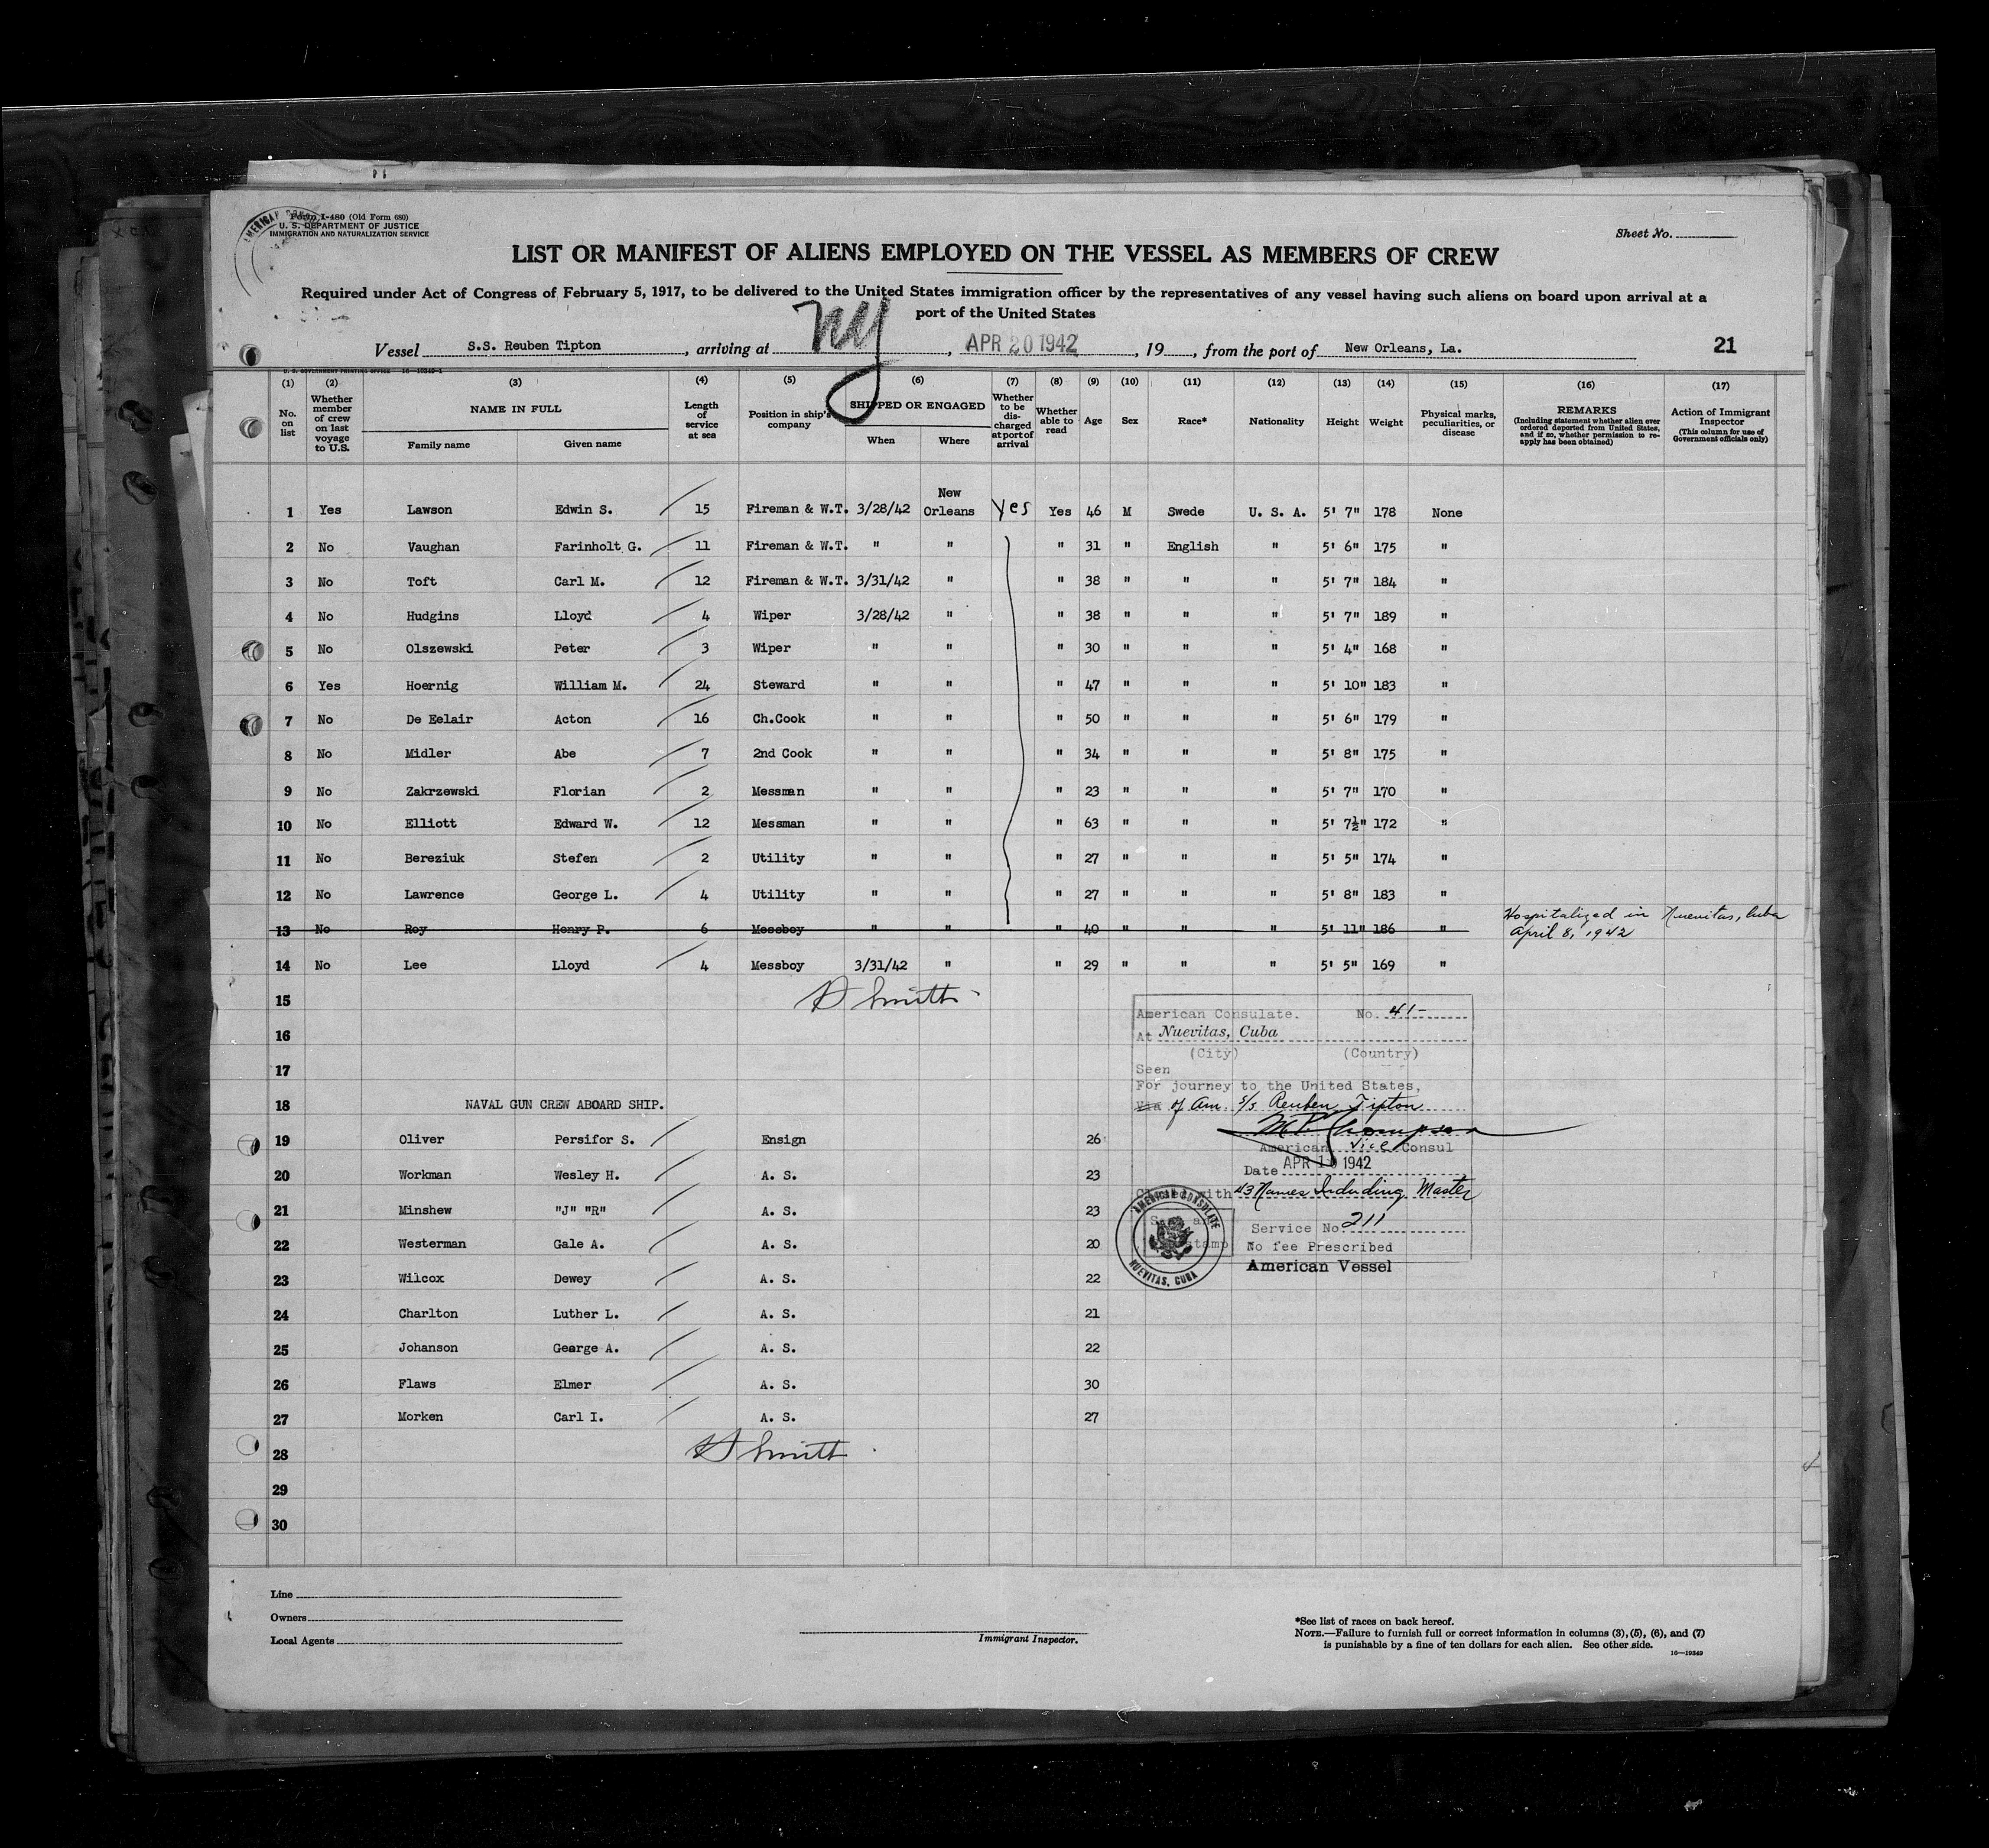 Form I-480 (Old Form 680)
U. S. DEPARTMENT OF JUSTICE
IMMIGRATION AND NATURALIZATION SERVICE
Sheet No.
LIST OR MANIFEST OF ALIENS EMPLOYED ON THE VESSEL AS MEMBERS OF CREW
Required under Act of Congress of February 5, 1917, to be delivered to the United States immigration officer by the representatives of any vessel having such aliens on board upon arrival at a
port of the United States
Vessel S.S. Reuben Tipton, arriving at NY, APR 20 1942, 19, from the port of New Orleans, La. 21
U. S. GOVERNMENT PRINTING OFFICE 16—19349-1
(1) (2) (3) (4) (5) (6) (7) (8) (9) (10) (11) (12) (13) (14) (15) (16) (17)
No. on list
Whether member of crew on last voyage to U.S.
NAME IN FULL
Family name Given name
Length of service at sea
Position in ship's company
SHIPPED OR ENGAGED
When Where
Whether to be discharged at port of arrival
Whether able to read
Age Sex Race* Nationality Height Weight
Physical marks, peculiarities, or disease
REMARKS
(Including statement whether alien ever ordered deported from United States, and if so, whether permission to reapply has been obtained)
Action of Immigrant Inspector
(This column for use of Government officials only)
1 Yes Lawson Edwin S. 15 Fireman & W.T. 3/28/42 New Orleans Yes Yes 46 M Swede U. S. A. 5' 7" 178 None
2 No Vaughan Farinholt G. 11 Fireman & W.T. " " " 31 " English " 5' 6" 175 "
3 No Toft Carl M. 12 Fireman & W.T. 3/31/42 " " 38 " " " 5' 7" 184 "
4 No Hudgins Lloyd 4 Wiper 3/28/42 " " 38 " " " 5' 7" 189 "
5 No Olszewski Peter 3 Wiper " " " 30 " " " 5' 4" 168 "
6 Yes Hoernig William M. 24 Steward " " " 47 " " " 5' 10" 183 "
7 No De Eelair Acton 16 Ch.Cook " " " 50 " " " 5' 6" 179 "
8 No Midler Abe 7 2nd Cook " " " 34 " " " 5' 8" 175 "
9 No Zakrzewski Florian 2 Messman " " " 23 " " " 5' 7" 170 "
10 No Elliott Edward W. 12 Messman " " " 63 " " " 5' 7½" 172 "
11 No Bereziuk Stefen 2 Utility " " " 27 " " " 5' 5" 174 "
12 No Lawrence George L. 4 Utility " " " 27 " " " 5' 8" 183 "
13 No Roy Henry P. 6 Messboy " " " 40 " " " 5' 11" 186 " Hospitalized in Nuevitas, Cuba
April 8, 1942
14 No Lee Lloyd 4 Messboy 3/31/42 " " 29 " " " 5' 5" 169 "
15 Smith
16
17
18 NAVAL GUN CREW ABOARD SHIP.
19 Oliver Persifor S. Ensign 26
20 Workman Wesley H. A. S. 23
21 Minshew "J" "R" A. S. 23
22 Westerman Gale A. A. S. 20
23 Wilcox Dewey A. S. 22
24 Charlton Luther L. A. S. 21
25 Johanson Gearge A. A. S. 22
26 Flaws Elmer A. S. 30
27 Morken Carl I. A. S. 27
28 Smith
29
30
American Consulate. No. 41-
At Nuevitas, Cuba
(City) (Country)
Seen
For journey to the United States,
Via of Am. S/S Reuben Tipton
M P Thompson
American Vice Consul
Date APR 10 1942
with 43 Names Including Master
Service No 211
No fee Prescribed
American Vessel
AMERICAN CONSULATE
NUEVITAS, CUBA
Line
Owners
Local Agents
Immigrant Inspector.
*See list of races on back hereof.
NOTE.—Failure to furnish full or correct information in columns (3), (5), (6), and (7)
is punishable by a fine of ten dollars for each alien. See other side.
16—19349